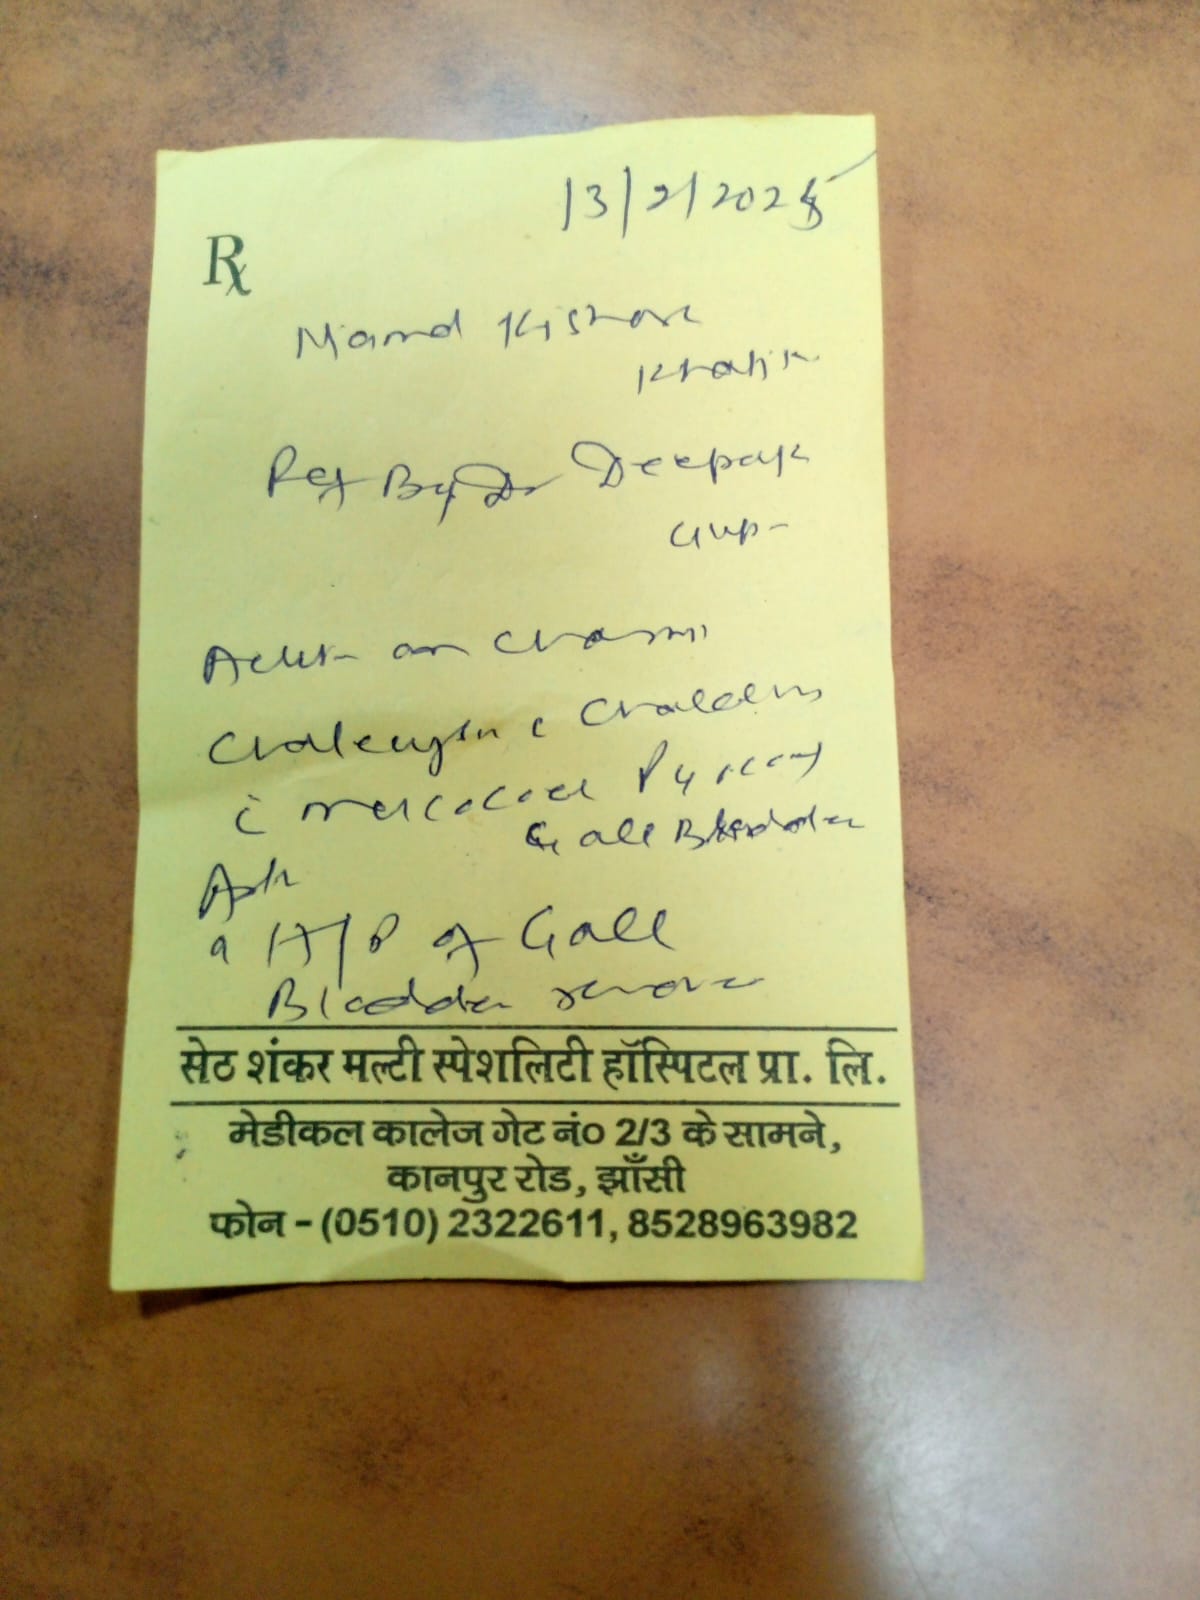 13/2/2025
Rx
Nand Kishore
Khatik
Ref By Dr Deepak
Gup
Acute on Chronic
Cholecystitis c Cholelithiasis
c Gall Bladder
Adv
H/P of Gall
Bladder
सेठ शंकर मल्टी स्पेशलिटी हॉस्पिटल प्रा. लि.
मेडीकल कालेज गेट नं० 2/3 के सामने,
कानपुर रोड, झाँसी
फोन - (0510) 2322611, 8528963982